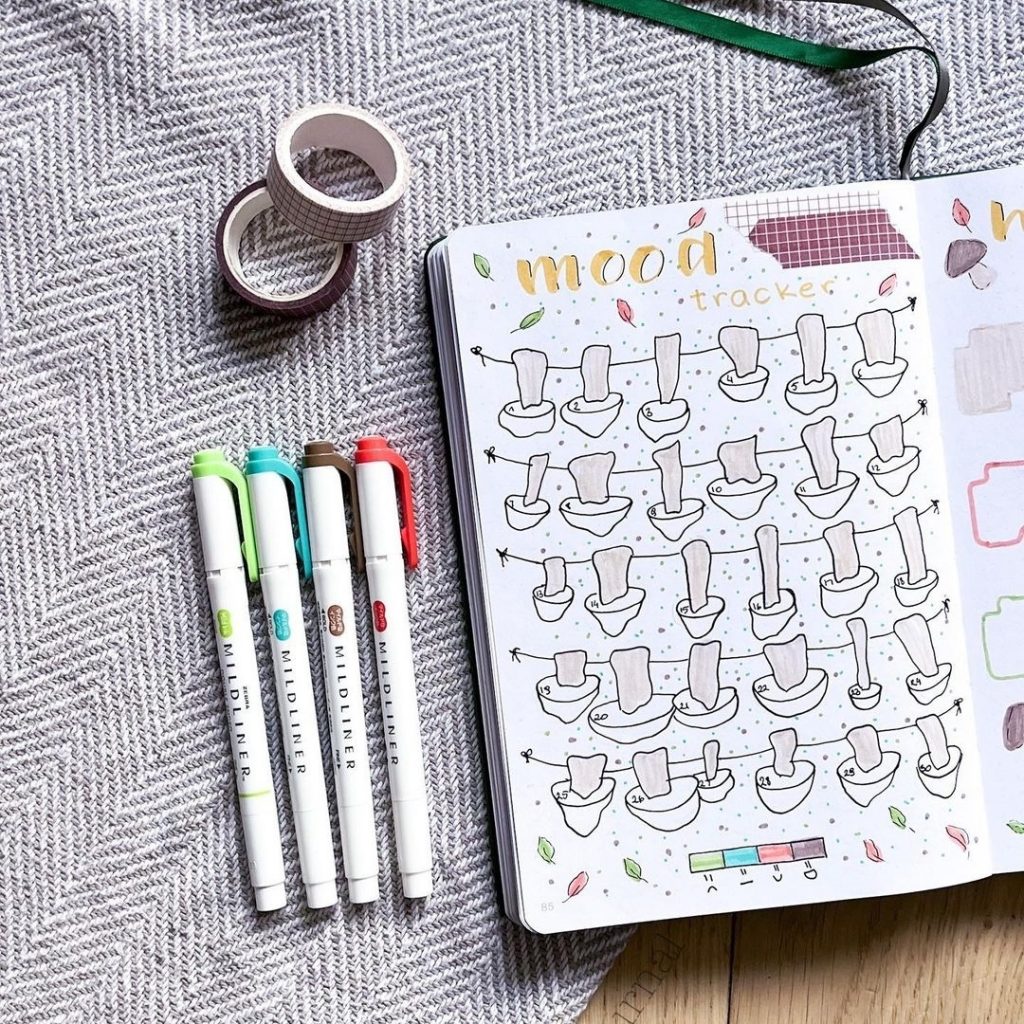 mood
tracker
1 2 3 4 5 6
8 9 10 11 12
13 14 15 16 17 18
19 20 21 22 23 24
25 26 27 28 29 30
ZEBRA
MILDLINER
MILDLINER
MILDLINER
MILDLINER
85
urnal